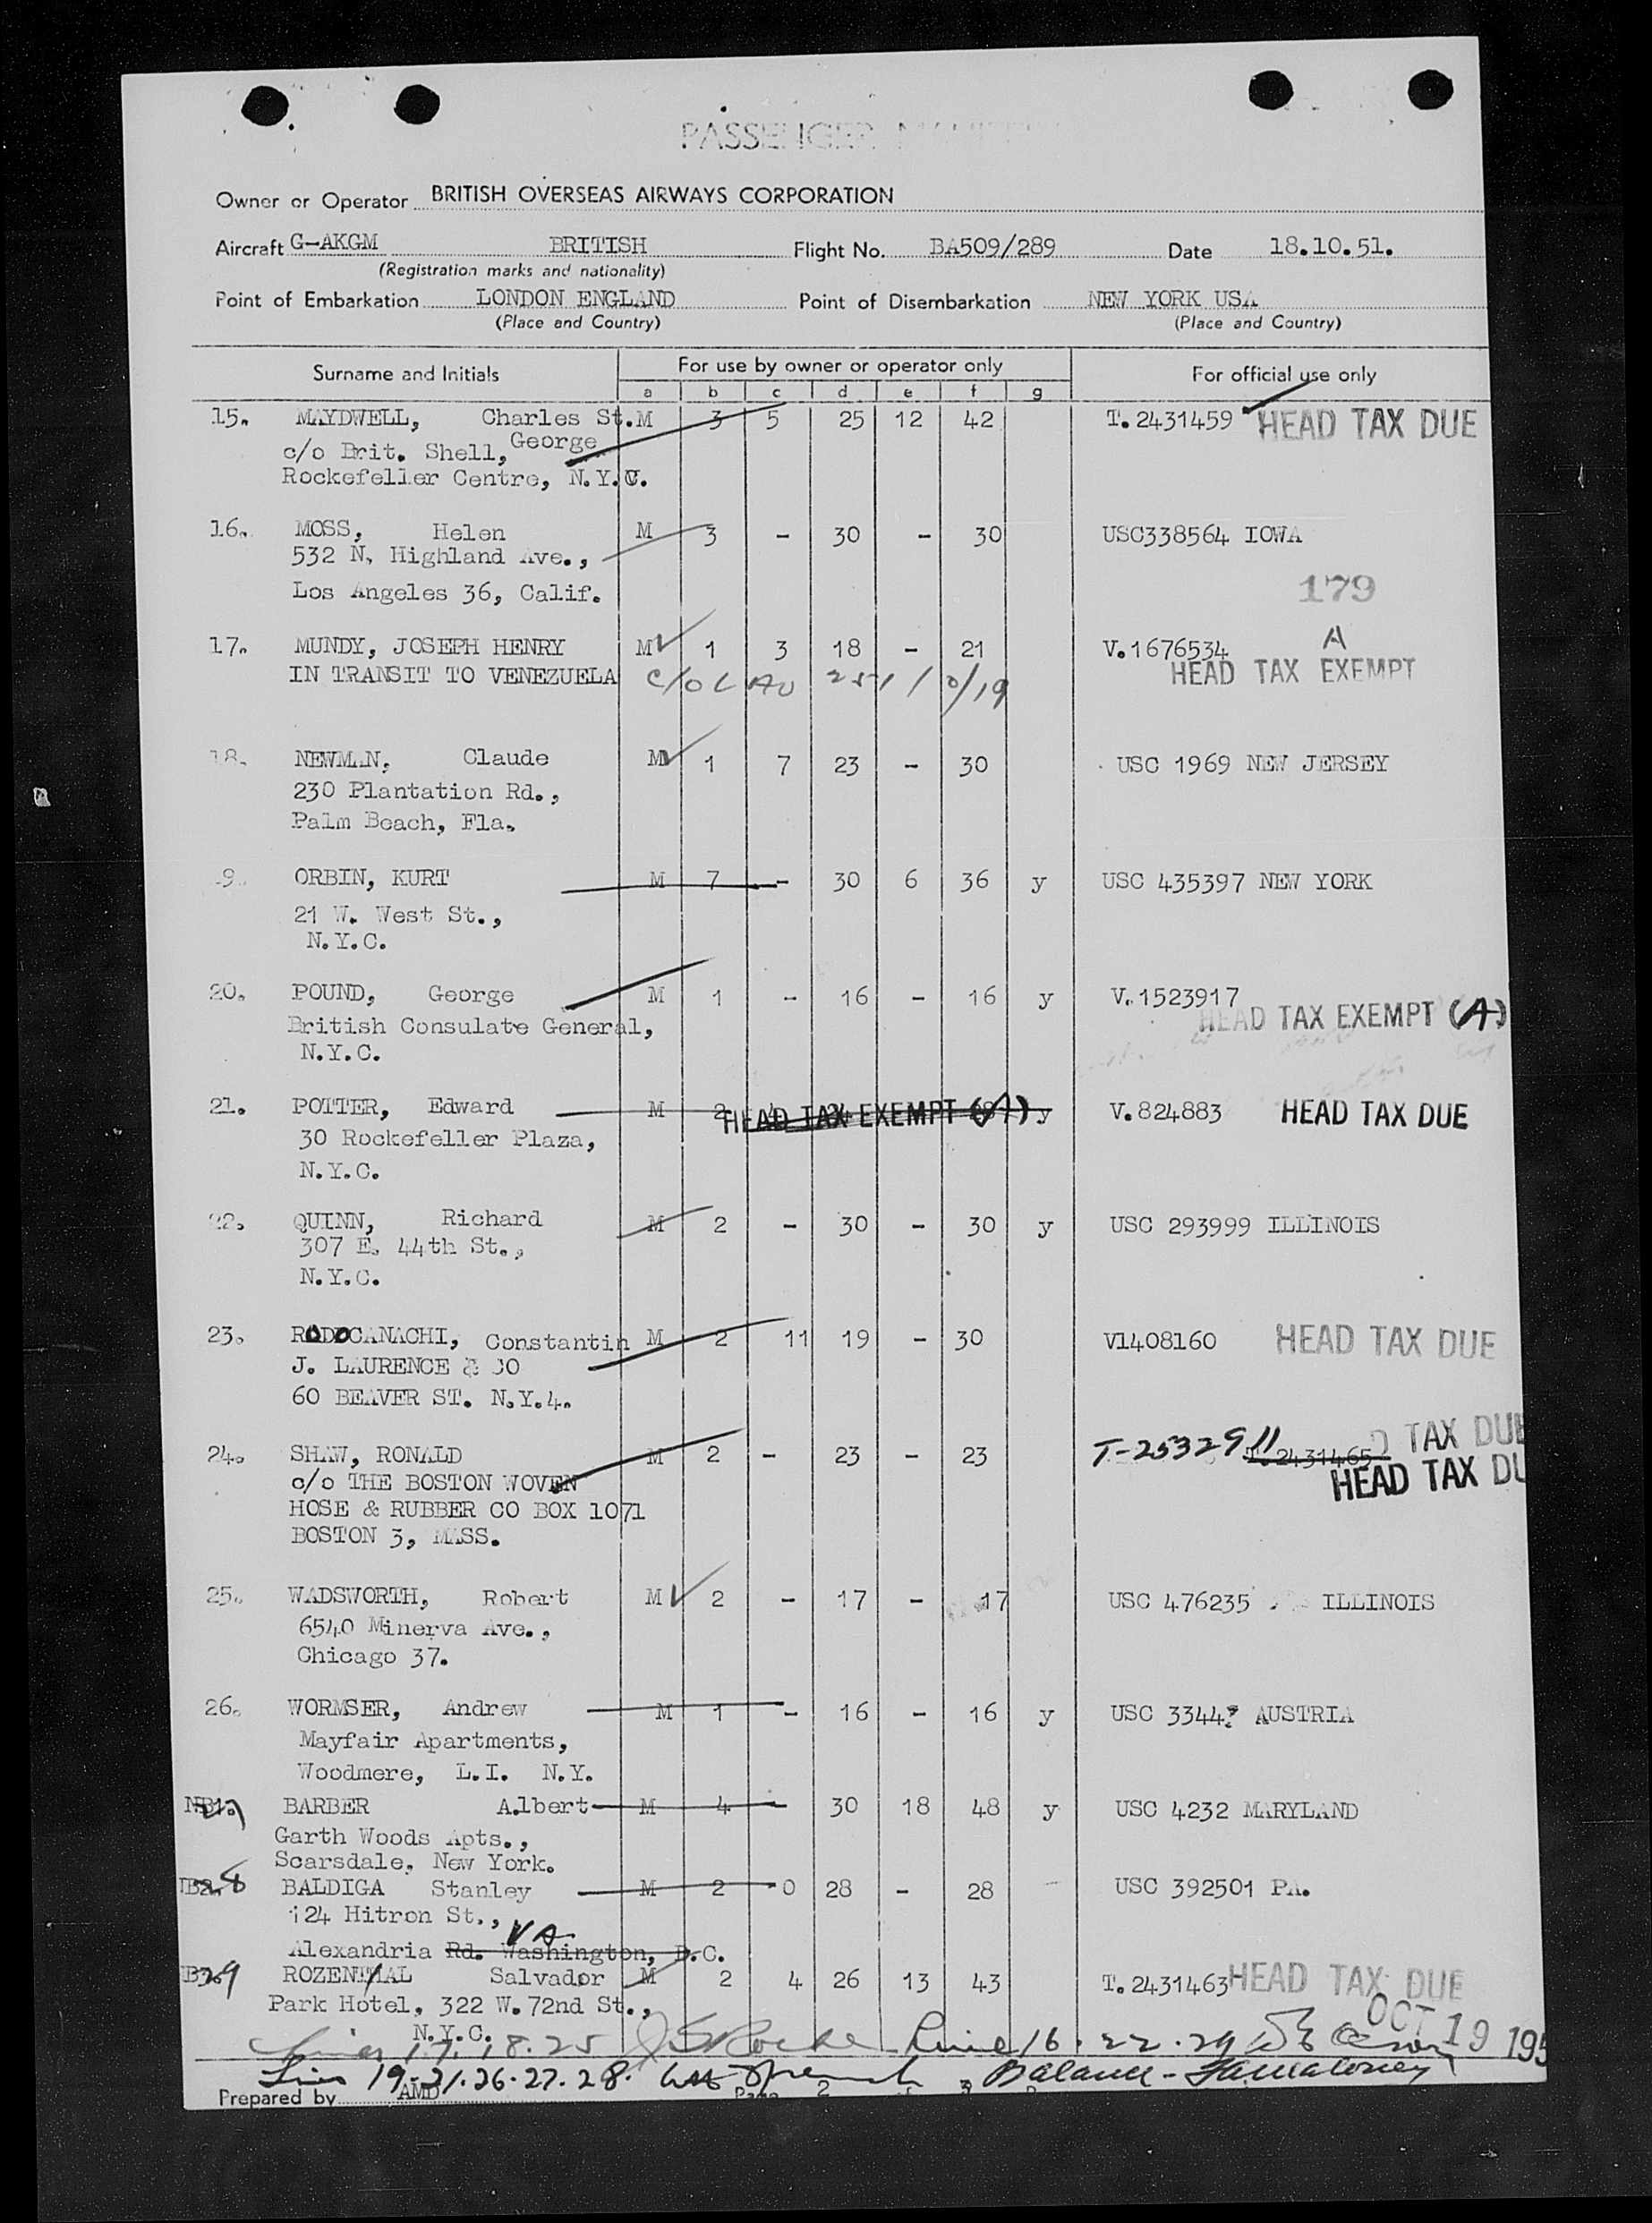 PASSENGER MANIFEST
Owner or Operator BRITISH OVERSEAS AIRWAYS CORPORATION
Aircraft G-AKGM BRITISH Flight No. BA509/289 Date 18.10.51.
(Registration marks and nationality)
Point of Embarkation LONDON ENGLAND Point of Disembarkation NEW YORK USA
(Place and Country) (Place and Country)
Surname and Initials For use by owner or operator only For official use only
a b c d e f g
15. MAYDWELL, Charles St. M 3 5 25 12 42 T.2431459 HEAD TAX DUE
George
c/o Brit. Shell,
Rockefeller Centre, N.Y.C.
16. MOSS, Helen M 3 - 30 - 30 USC338564 IOWA
532 N, Highland Ave.,
Los Angeles 36, Calif.
179
17. MUNDY, JOSEPH HENRY M 1 3 18 - 21 V.1676534 A
IN TRANSIT TO VENEZUELA HEAD TAX EXEMPT
18. NEWMAN, Claude M 1 7 23 - 30 USC 1969 NEW JERSEY
230 Plantation Rd.,
Palm Beach, Fla.
9. ORBIN, KURT M 7 - 30 6 36 y USC 435397 NEW YORK
21 W. West St.,
N.Y.C.
20. POUND, George M 1 - 16 - 16 y V.1523917
British Consulate General, HEAD TAX EXEMPT (A)
N.Y.C.
21. POTTER, Edward M 2 4 24 y V.824883 HEAD TAX DUE
HEAD TAX EXEMPT (A)
30 Rockefeller Plaza,
N.Y.C.
22. QUINN, Richard M 2 - 30 - 30 y USC 293999 ILLINOIS
307 E. 44th St.,
N.Y.C.
23. RODOCANACHI, Constantin M 2 11 19 - 30 V1408160 HEAD TAX DUE
J. LAURENCE & CO
60 BEAVER ST. N.Y.4.
24. SHAW, RONALD M 2 - 23 - 23 T-2532911 T.2431465 TAX DUE
c/o THE BOSTON WOVEN HEAD TAX DU
HOSE & RUBBER CO BOX 1071
BOSTON 3, MASS.
25. WADSWORTH, Robert M 2 - 17 - 17 USC 476235 ILLINOIS
6540 Minerva Ave.,
Chicago 37.
26. WORMSER, Andrew M 1 - 16 - 16 y USC 3344? AUSTRIA
Mayfair Apartments,
Woodmere, L.I. N.Y.
27 BARBER Albert M 4 - 30 18 48 y USC 4232 MARYLAND
Garth Woods Apts.,
Scarsdale, New York.
28 BALDIGA Stanley M 2 0 28 - 28 - USC 392501 PA.
124 Hitron St.,
VA
Alexandria Rd. Washington, D.C.
29 ROZENTHAL Salvador M 2 4 26 13 43 T.2431463 HEAD TAX DUE
Park Hotel, 322 W. 72nd St.,
N.Y.C. OCT 19 195
Lines 17.18.25 Line 16.22.29
Lines 19-21.26.27.28. Balance -
Prepared by AMD Page 2 of 3